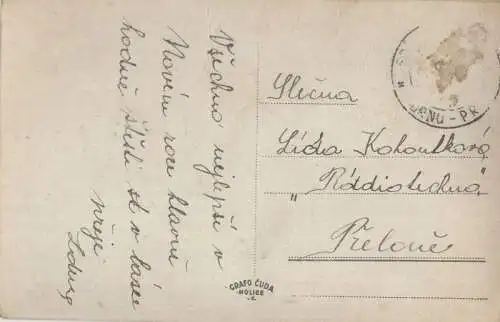 Všechno nejlepší v
Novém roce hlavně
hodně štěstí v lásce
přeje
Ludwig
Slečna
Lída Kohoutková
"Rádiotechna"
Přelouč
GRAFO ČUDA
HOLICE
BRNU-PR